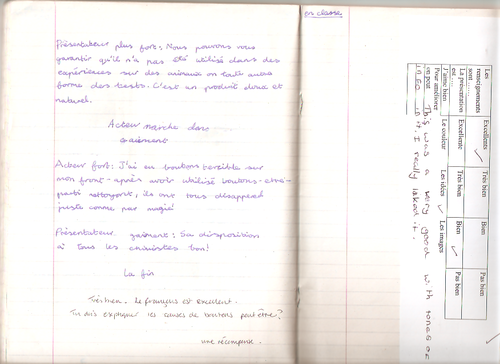 Présentateur plus fort: Nous pouvons vous
garantir qu'il n'a pas été utilisé dans des
expériences sur des animaux ou toute autre
forme des tests. C'est un produit doux et
naturel.
Acteur marche dans
Acteur fort: J'ai eu boutons terrible sur
mon front - après avoir utilisé boutons-être-
parti nettoyant, ils ont tous desappeard
juste comme par magie!
Présentateur gaîment: Sa disposition
à tous les chimistes bon!
La fin
Très bien. Le français est excellent.
Tu dois expliquer les causes de boutons peut être?
une récompense.
en classe
Les renseignements sont ...... Excellents Très bien Bien Pas bien
La présentation est ...... Excellente Très bien Bien Pas bien
J'aime bien La couleur Les idées Les images
Pour améliorer on peut
This was a very good with tones of
info in it. I really liked it.